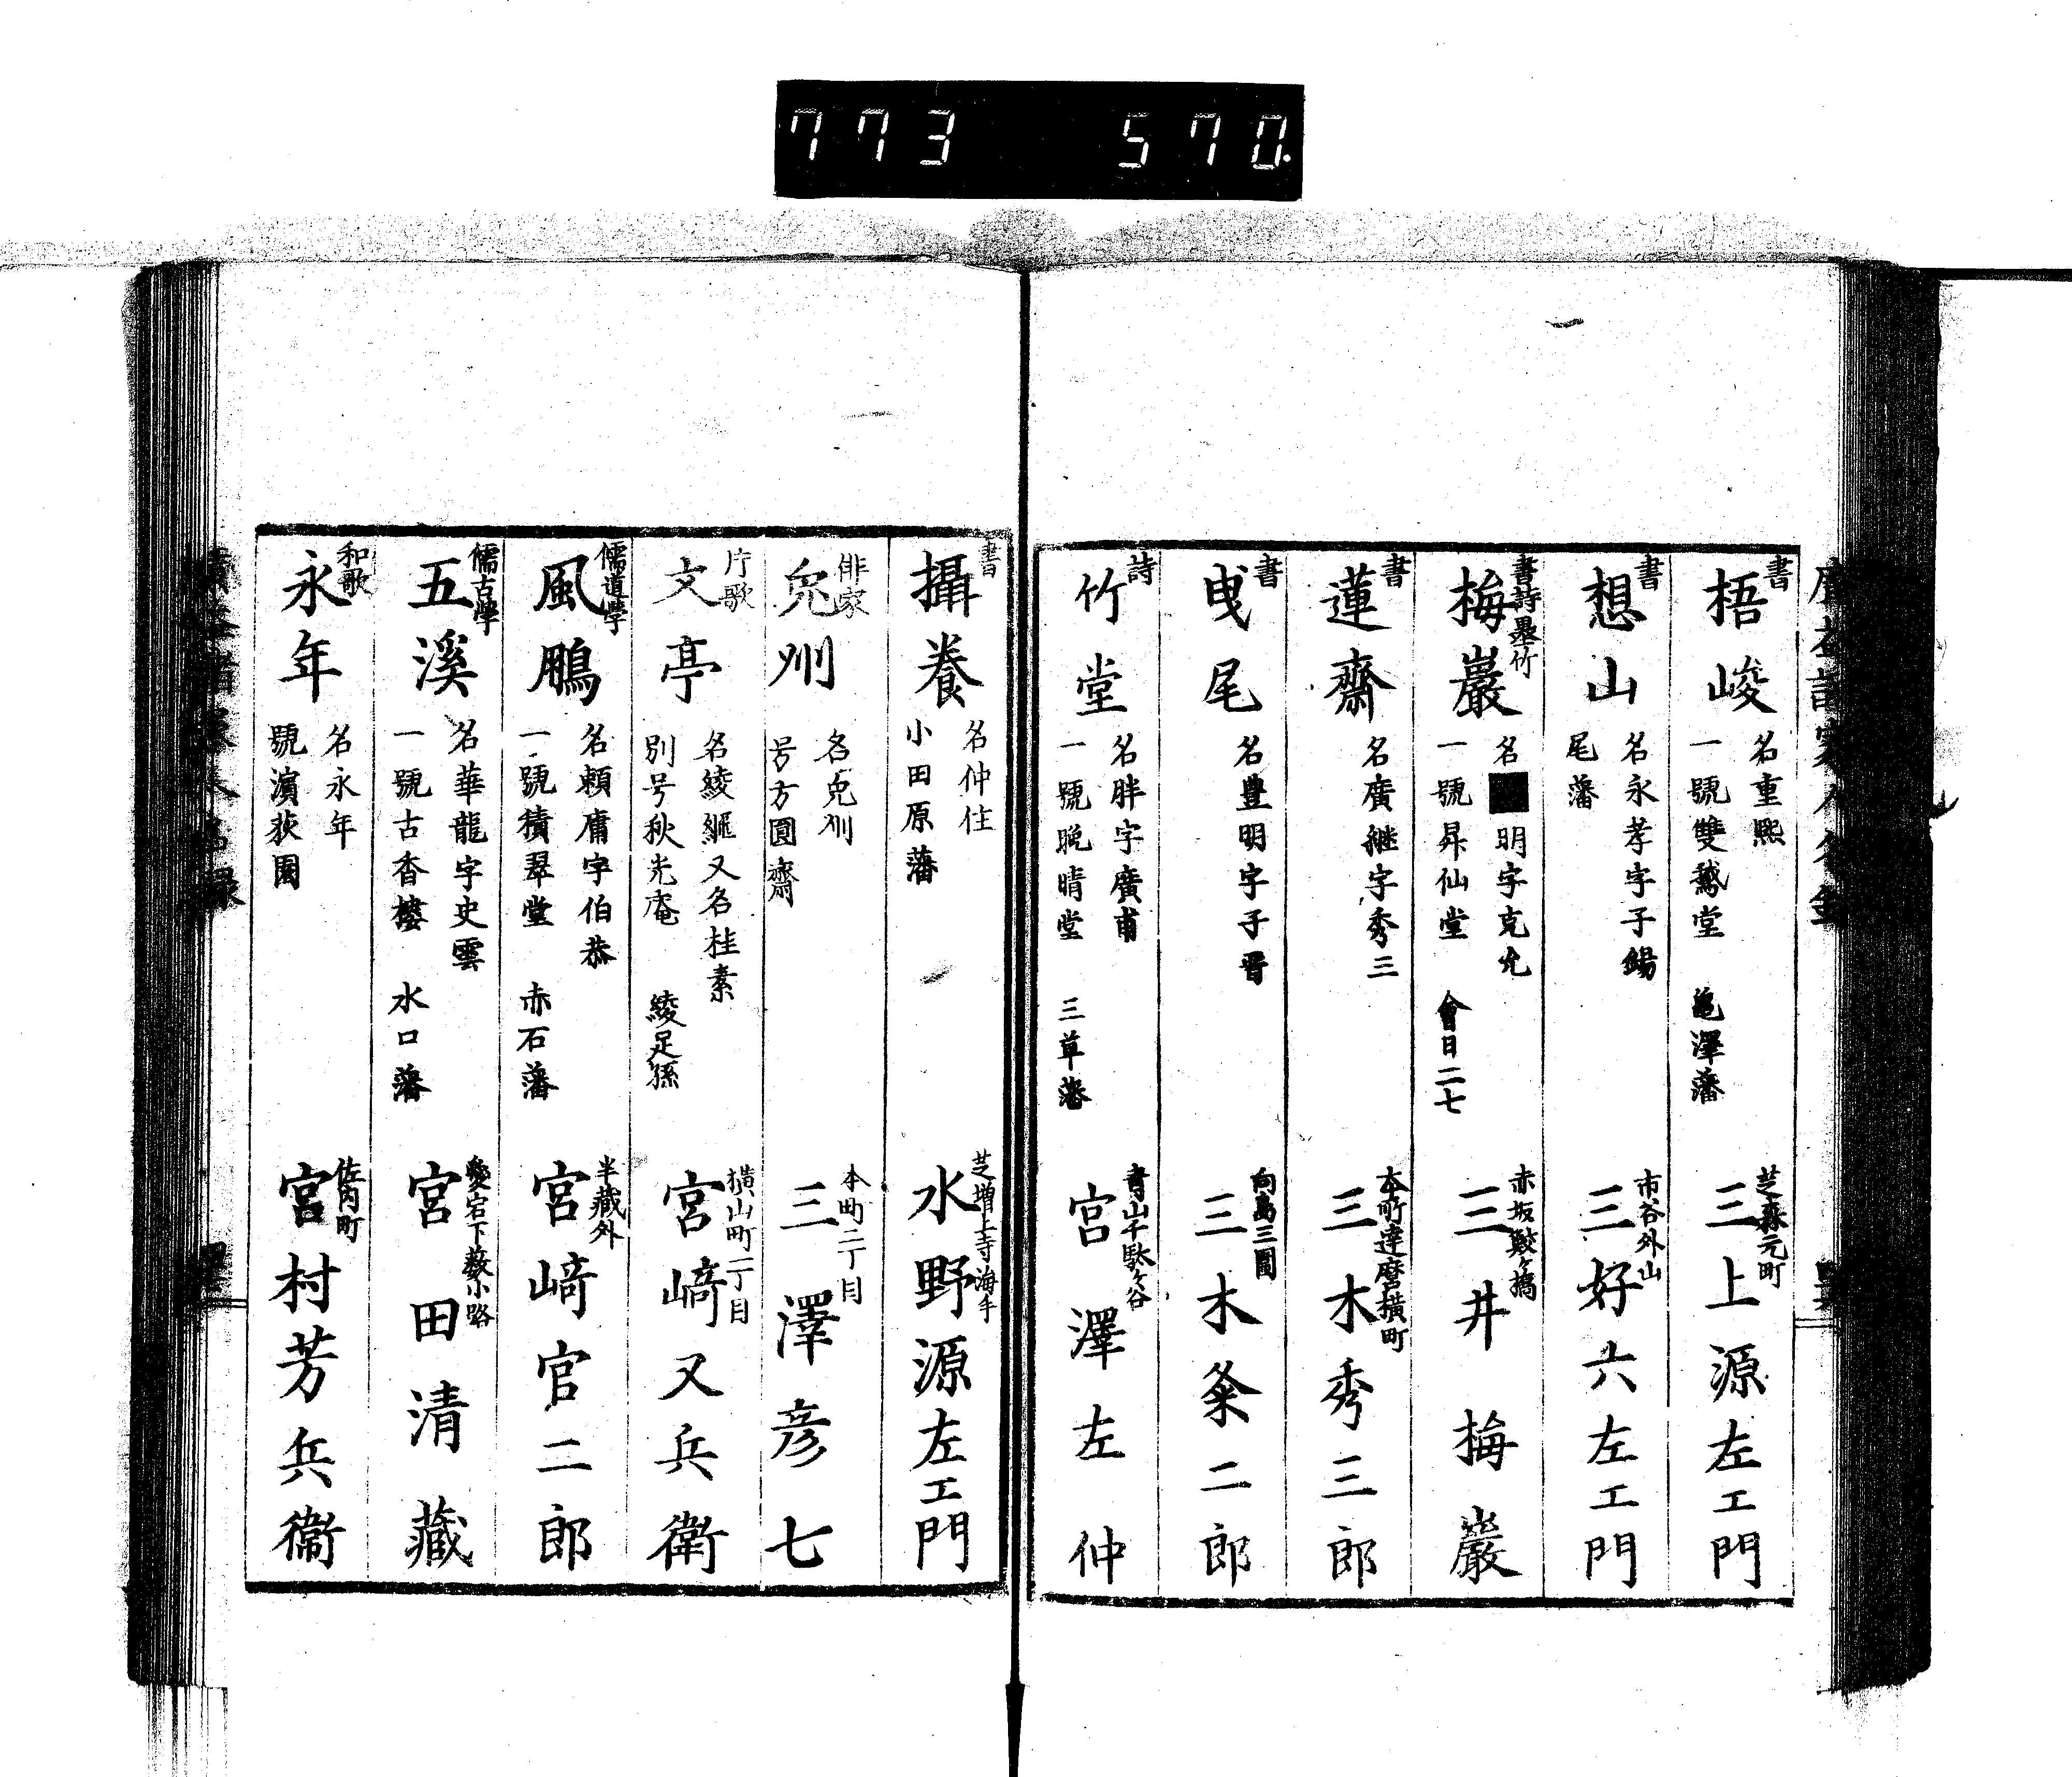 773 570.
書
梧峻
名重熙
一號雙鵞堂 亀澤藩
芝森元町
三上源左エ門
書
想山
名永孝字子錫
尾藩
市谷外山
三好六左エ門
書詩墨竹
梅巖
名■明字克允
一號昇仙堂 會日二七
赤坂鮫ヶ橋
三井梅巖
書
蓮齋
名廣継字秀三
本所達磨横町
三木秀三郎
書
曳尾
名豊明字子晋
向島三圍
三木粂二郎
詩
竹堂
名胖字廣甫
一號晩晴堂 三草藩
青山千駄ヶ谷
宮澤左仲
書
攝養
名仲住
小田原藩
芝増上寺海手
水野源左エ門
俳家
兔州
名兔州
号方圓齋
本町二丁目
三澤彦七
片歌
文亭
名綾繩又名桂素
別号秋光庵 綾足孫
横山町二丁目
宮﨑又兵衛
儒道學
風鵰
名頼庸字伯恭
一號積翠堂 赤石藩
半藏外
宮﨑官二郎
儒古學
五溪
名華龍字史雲
一號古香樓 水口藩
愛宕下藪小路
宮田清藏
和歌
永年
名永年
號濵荻園
佐内町
宮村芳兵衞